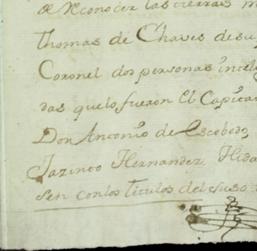 de Reconocer las tierras
Thomas de Chaves de su
Coronel dos personas intel
das que lo fueron El Capitan
Don Antonio de Escobedo
Jazinto Hernandez Hida
sen con los titulos del suso